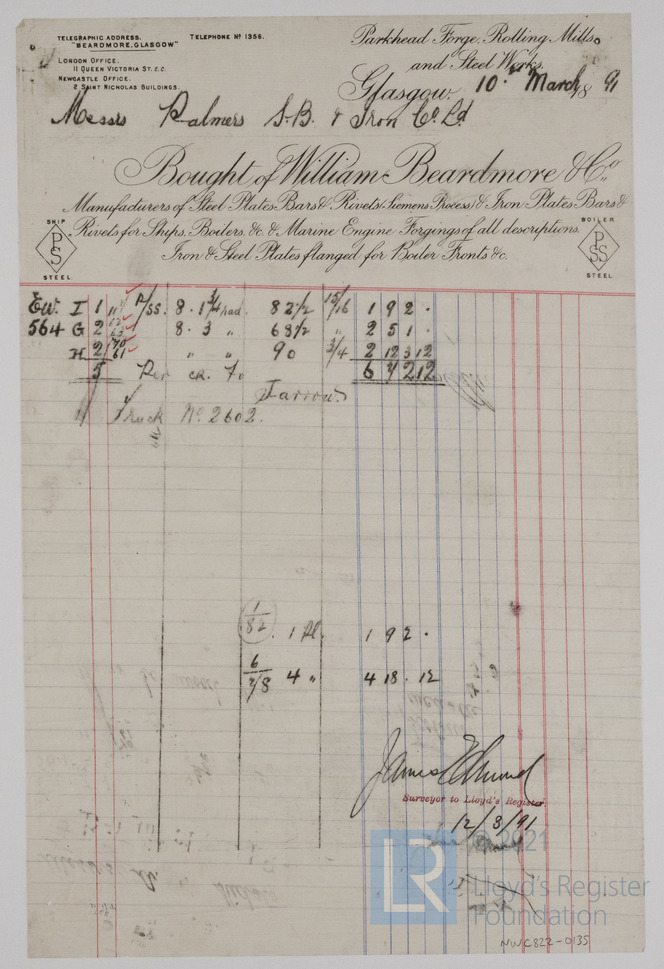 TELEGRAPHIC ADDRESS. TELEPHONE Nº 1356.
"BEARDMORE, GLASGOW"
LONDON OFFICE.
11 QUEEN VICTORIA ST. E.C.
NEWCASTLE OFFICE.
2 SAINT NICHOLAS BUILDINGS.
Parkhead Forge, Rolling Mills,
and Steel Works,
Glasgow. 10th March, 18 91
Messrs Palmers S.B. & Iron Co. Ld
Bought of William Beardmore & Co.
Manufacturers of Steel Plates Bars & Rivets (Siemens Process) & Iron Plates Bars &
Rivets for Ships, Boilers, &c. & Marine Engine Forgings of all descriptions.
Iron & Steel Plates flanged for Boiler Fronts &c.
SHIP
PS
S
STEEL
BOILER
P
SS
STEEL
EW. I 1 P/SS. 8. 1 3/4 rad. 82 1/2 15/16 1 9 2 .
564 G 2 8. 3 " 63 1/2 " 2 5 1 .
H 2 70 61 " " 90 3/4 2 12 3 12
5 Per cr. to 6 7 2 12
Jarrow
Truck No. 2602.
1/82. 1 Pl. 1 9 2 .
6/78 4 " 4 18 . 12
Surveyor to Lloyd's Register.
12/3/91
© 2021
LR
Lloyd's Register
Foundation
NWC822-0135